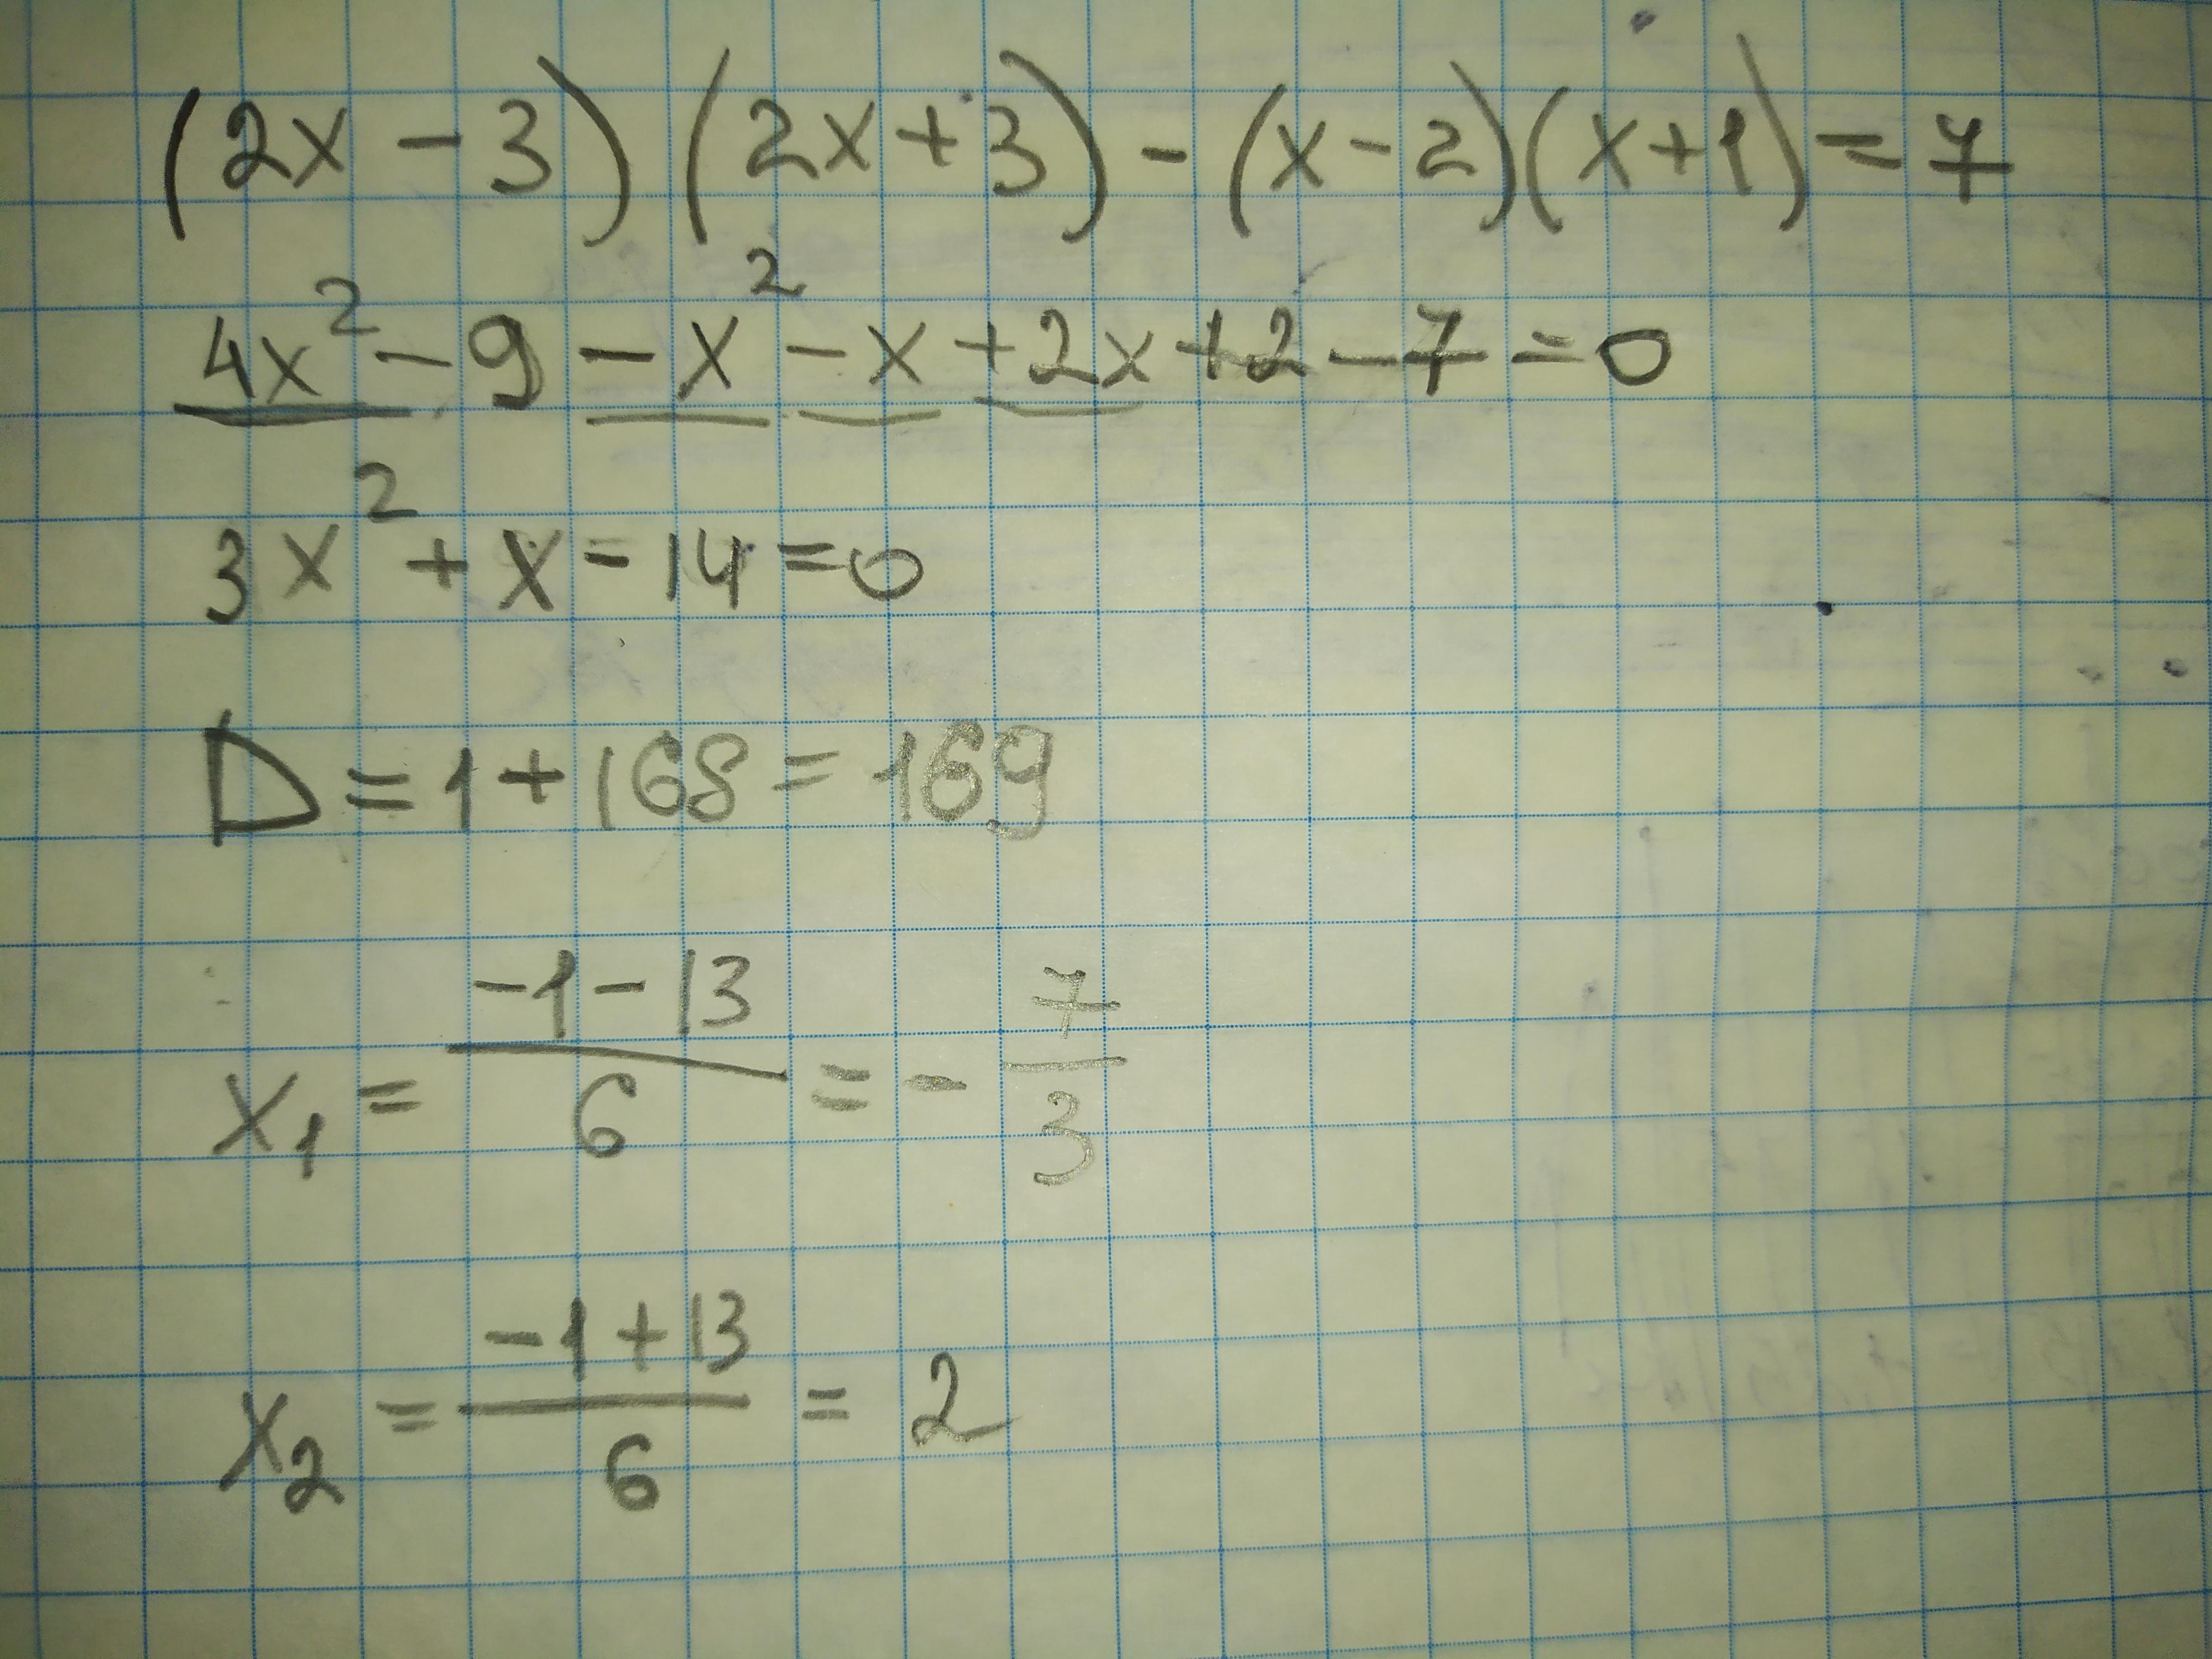 (2x - 3)(2x + 3) - (x - 2)(x + 1) = 7
4x² - 9 - x² - x + 2x + 2 - 7 = 0
3x² + x - 14 = 0
D = 1 + 168 = 169
x₁ = (-1 - 13)/6 = - 7/3
x₂ = (-1 + 13)/6 = 2